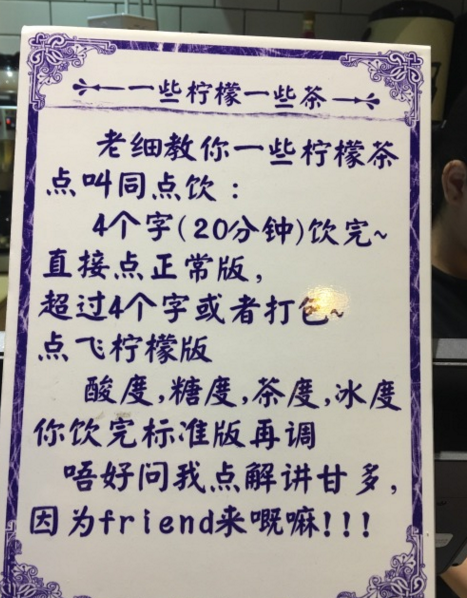 一些柠檬一些茶
老细教你一些柠檬茶
点叫同点饮：
4个字(20分钟)饮完~
直接点正常版，
超过4个字或者打包~
点飞柠檬版
酸度,糖度,茶度,冰度
你饮完标准版再调
唔好问我点解讲甘多，
因为friend来嘅嘛!!!